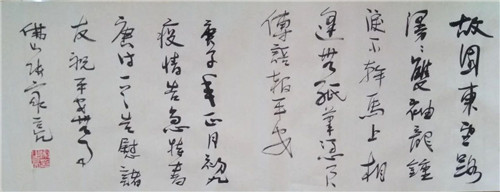 故園東望路
漫々雙袖龍鍾
淚不幹馬上相
逢無紙筆憑君
傳語報平安
庚子年正月初九
疫情告急特書
唐诗一首告慰諸
友祝平安無事
佛山